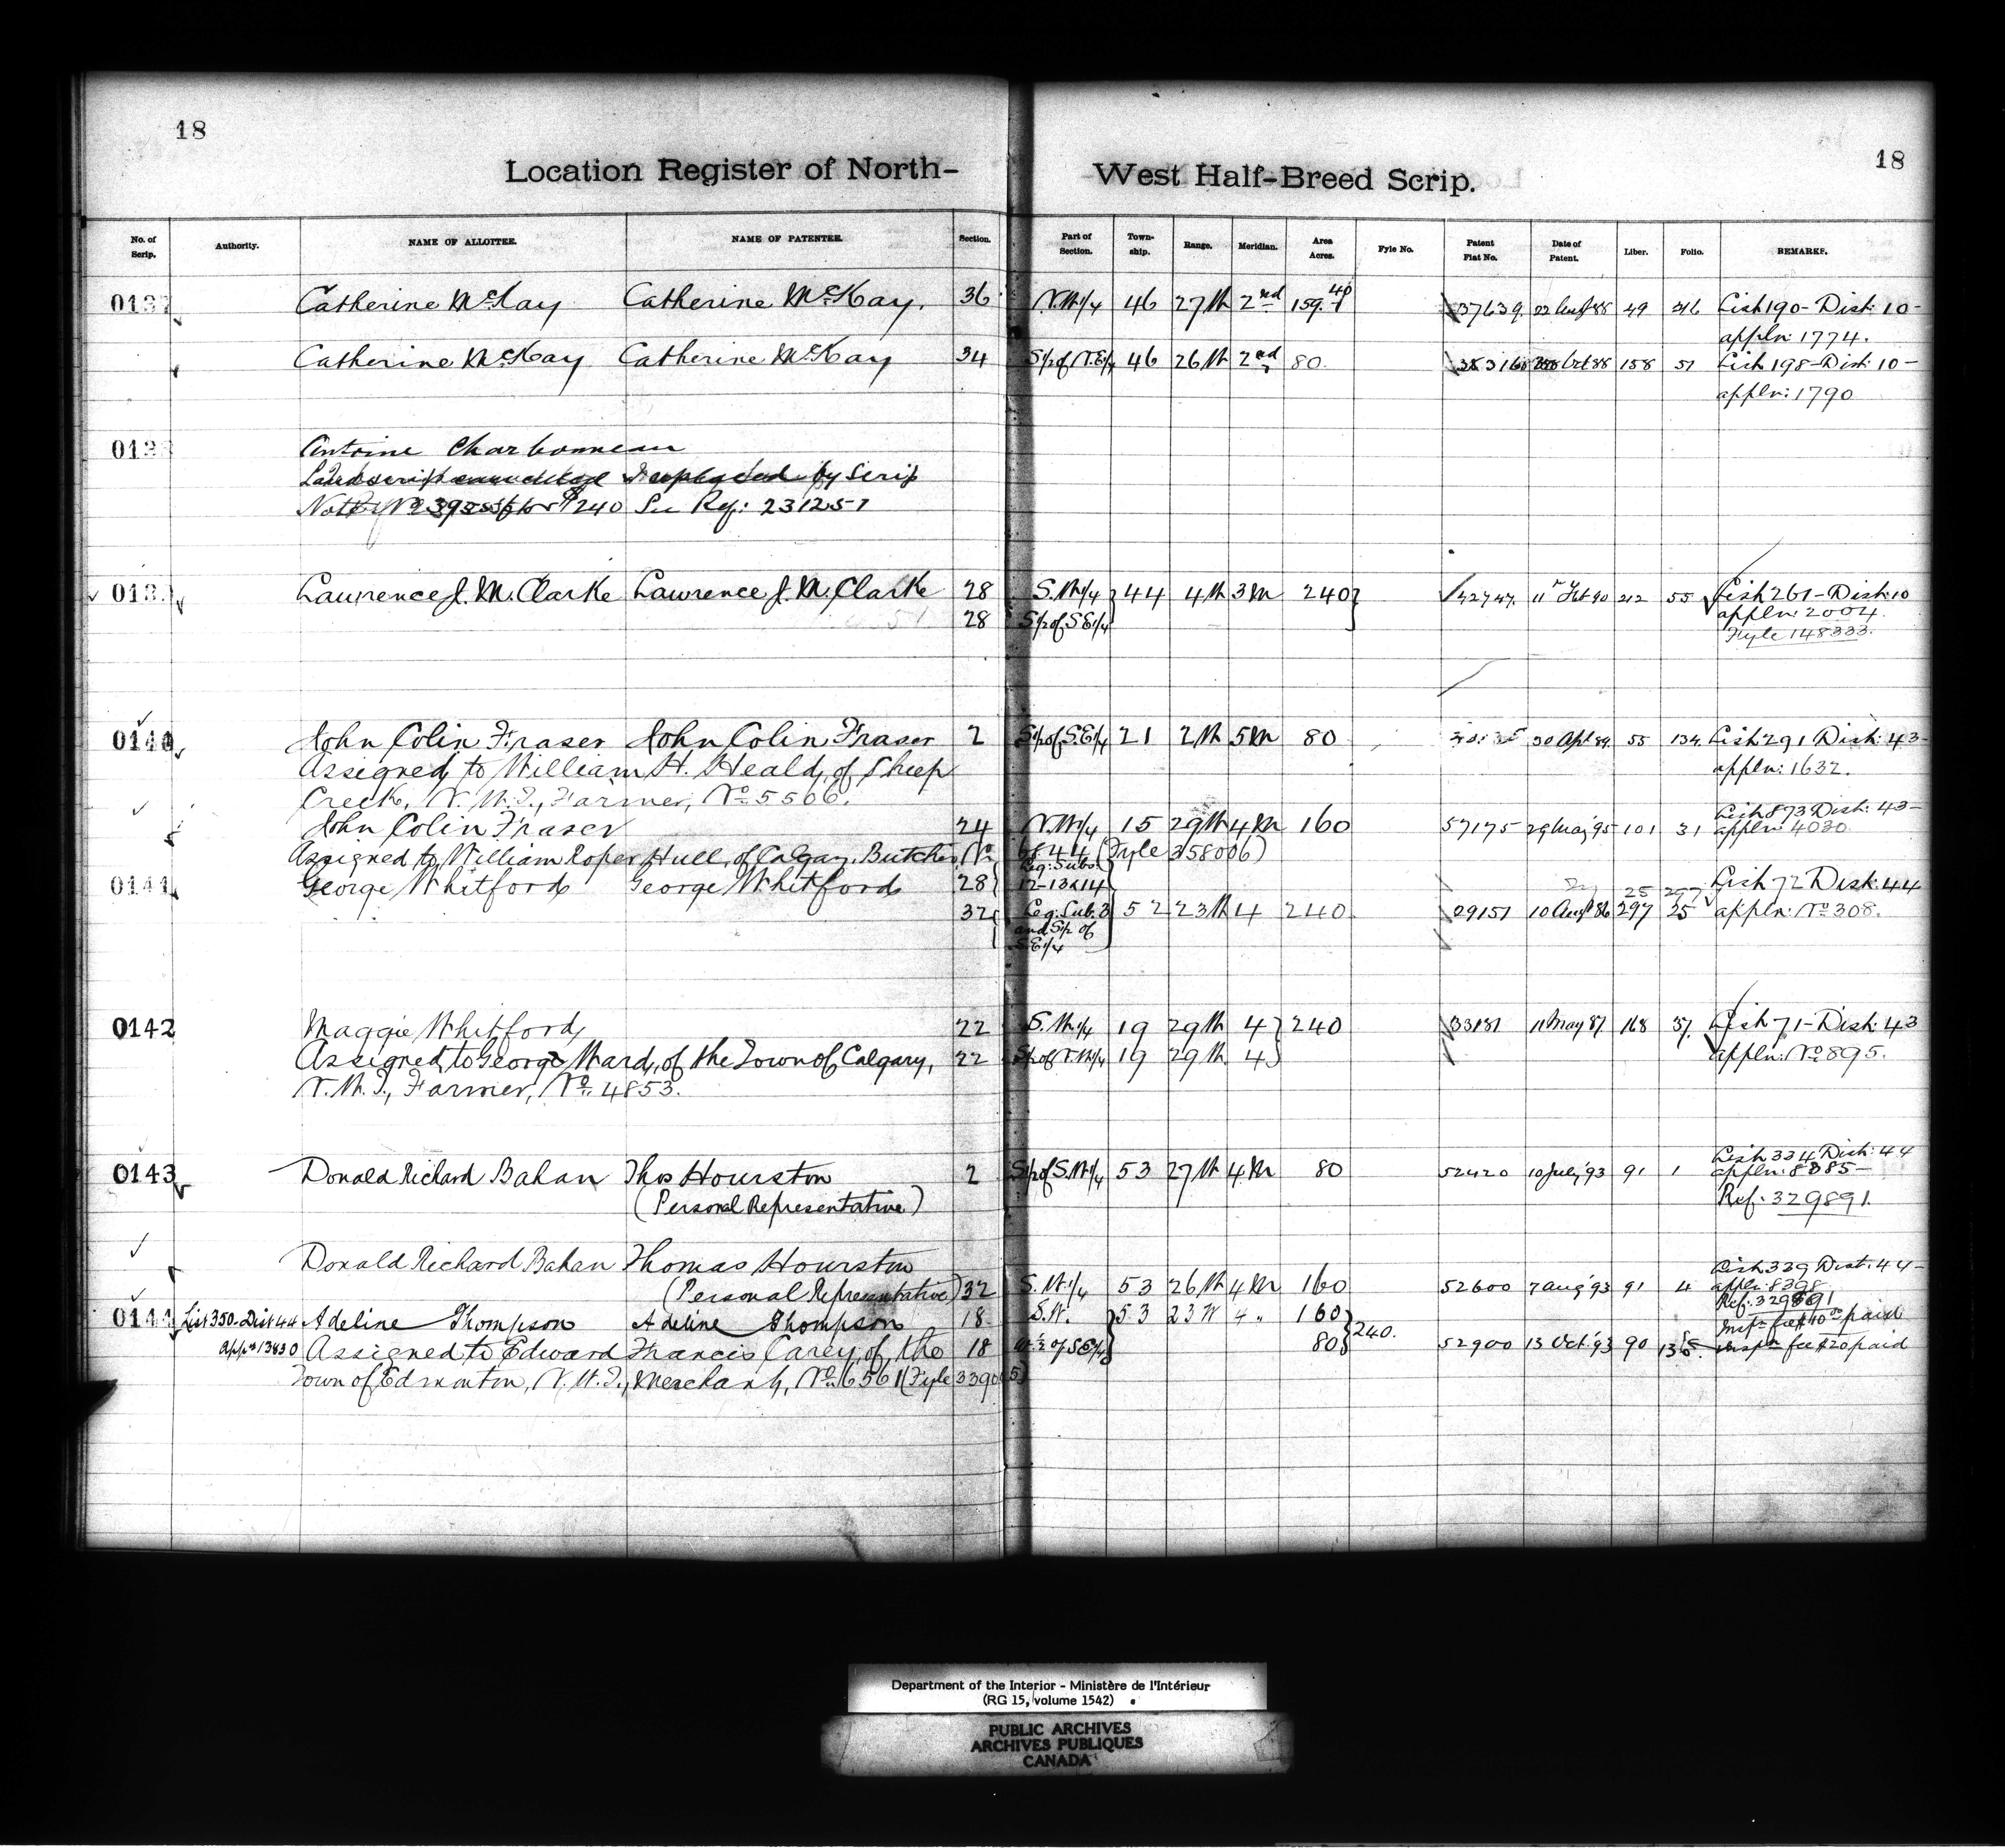 18
18
Location Register of North-West Half-Breed Scrip.
No. of Scrip. Authority. NAME OF ALLOTTEE. NAME OF PATENTEE. Section. Part of Section. Town-ship. Range. Meridian. Area Acres. Fyle No. Patent Fiat No. Date of Patent. Liber. Folio. REMARKS.
0137 Catherine McKay Catherine McKay. 36 N.W1/4 46 27W 2nd 159.40 37639 22 Augt 88 49 216 List 190 - Dist: 10 -
appln: 1774.
Catherine McKay Catherine McKay 34 S1/2 of N.E1/4 46 26W 2nd 80. Oct 88 158 51 List 198 - Dist: 10 -
appln: 1790
013 Antoine Charbonneau
Land scrip cancelled & replaced by Scrip
Note $240 See Ref: 231251
013 Laurence J. M. Clarke Lawrence J. M. Clarke 28 S.W1/4 44 4W 3M 240 42747. 11 Feb 90 212 55 List 261 - Dist: 10
28 S1/2 of S.E1/4 appln: 2004.
Fyle 148333.
0140 John Colin Fraser John Colin Fraser 2 S1/2 of S.E1/4 21 2W 5M 80 30 Apl 89. 55 134. List 291 Dist: 43 -
Assigned to William H. Heald, of Sheep appln: 1632.
Creek, N.W.T., Farmer, No. 5506.
John Colin Fraser 24 N.W1/4 15 29W 4M 160 57175 29 May '95 101 31 List 873 Dist: 43 -
appln: 4030
Assigned to William Roper Hull, of Calgary, Butcher, No. 44 (Fyle 358006)
0141 George Whitford George Whitford 28 Leg: Subs: 12-13&14 25 297 List 72 Dist: 44
32 Leg: Sub. 3 and S1/2 of S.E1/4 52 23W 4 240 29151 10 Augt 86 297 25 appln: No 308.
0142 Maggie Whitford 22 S.W1/4 19 29W 4 240 33181 11 May 87 168 37. List 71 - Dist: 43
Assigned to George Ward, of the Town of Calgary, 22 S1/2 of N.W1/4 19 29W 4 appln: No 895.
N.W.T., Farmer, No. 4853.
0143 Donald Richard Bahan Thos Hourston 2 S1/2 of S.W1/4 53 27W 4M 80 52420 10 July '93 91 1 List 334 Dist: 44
appln: 8385 -
(Personal Representative) Ref: 329891
Donald Richard Bahan Thomas Hourston List 339 Dist: 44 -
(Personal Representative) 32 S.W1/4 53 26W 4M 160 52600 7 Aug '93 91 4 appln: 8398
Ref: 329891
0144 List 350. Dist 44 Adeline Thompson Adeline Thompson 18 S.W. 53 23W 4 " 160 Inspn fee $10.00 paid
Appn 13830 Assigned to Edward Francis Carey, of the 18 W.1/2 of S.E1/4 80 240. 52900 13 Oct. '93 90 135. Inspn fee $20 paid
Town of Edmonton, N.W.T., Merchant, No. 6561 (Fyle 339
Department of the Interior - Ministère de l'Intérieur
(RG 15, volume 1542)
PUBLIC ARCHIVES
ARCHIVES PUBLIQUES
CANADA